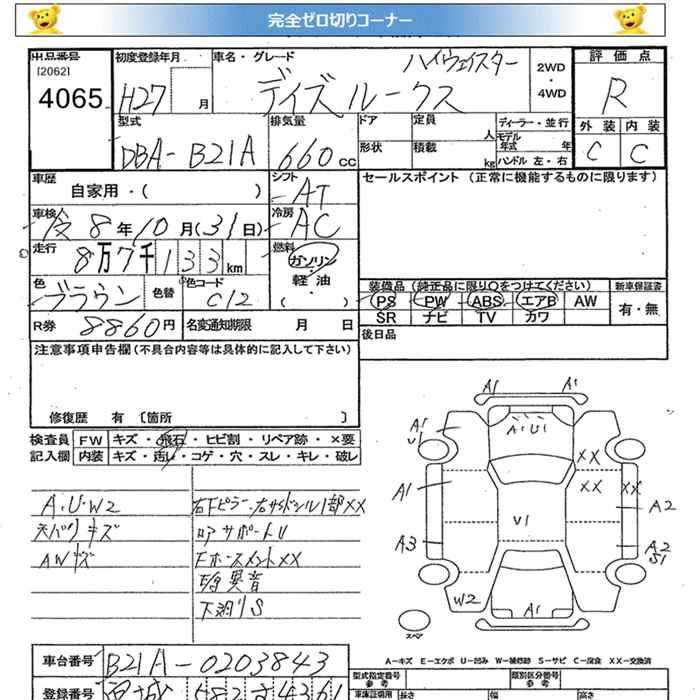 完全ゼロ切りコーナー
出品番号 初度登録年月 車名・グレード ハイウェイスター 評価点
[2062]
4065 H27 月 デイズルークス 2WD・4WD R
型式 排気量 ドア 定員 人 ディーラー・並行 外装 内装
DBA-B21A 660cc 形状 積載 kg モデル年式 年 ハンドル 左・右 C C
車歴 自家用・( ) シフト AT セールスポイント (正常に機能するものに限ります)
車検 令8年10月(31日) 冷房 AC
走行 8万7千133km 燃料 ガソリン・軽油・( )
装備品 (純正品に限り○をつけてください) 新車保証書
色 ブラウン 色替 色コード C12 PS PW ABS エアB AW 有・無
SR ナビ TV カワ
R券 8860円 名変通知期限 月 日 後日品
注意事項申告欄 (不具合内容等は具体的に記入して下さい)
修復歴 有 〔箇所 〕
検査員 FW キズ・飛石・ヒビ割・リペア跡・×要
記入欄 内装 キズ・汚レ・コゲ・穴・スレ・キレ・破レ
A.U.W2 右下ピラー.右サイドシル1部XX
キズ サポートU
AW キズ XX
異音
下廻りS
A1 A1
A1 U1 A1U1
XX
A1 XX XX A2
V1
A3 A2 S1
W2 A1
スペア
車台番号 B21A-0203843
A-キズ E-エクボ U-凹み W-補修跡 S-サビ C-腐食 XX-交換済
登録番号 型式指定番号 参考 類別区分番号 参考
車庫証明用 長さ 幅 高さ